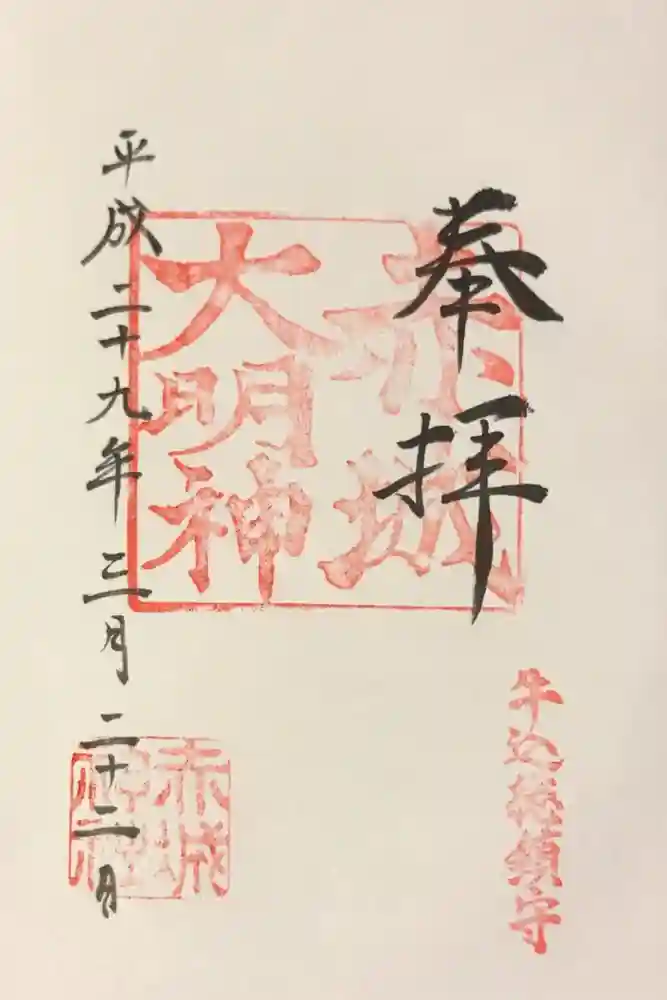 奉拝
赤城
大明神
牛込総鎮守
平成二十九年三月二十二月
赤城
神社